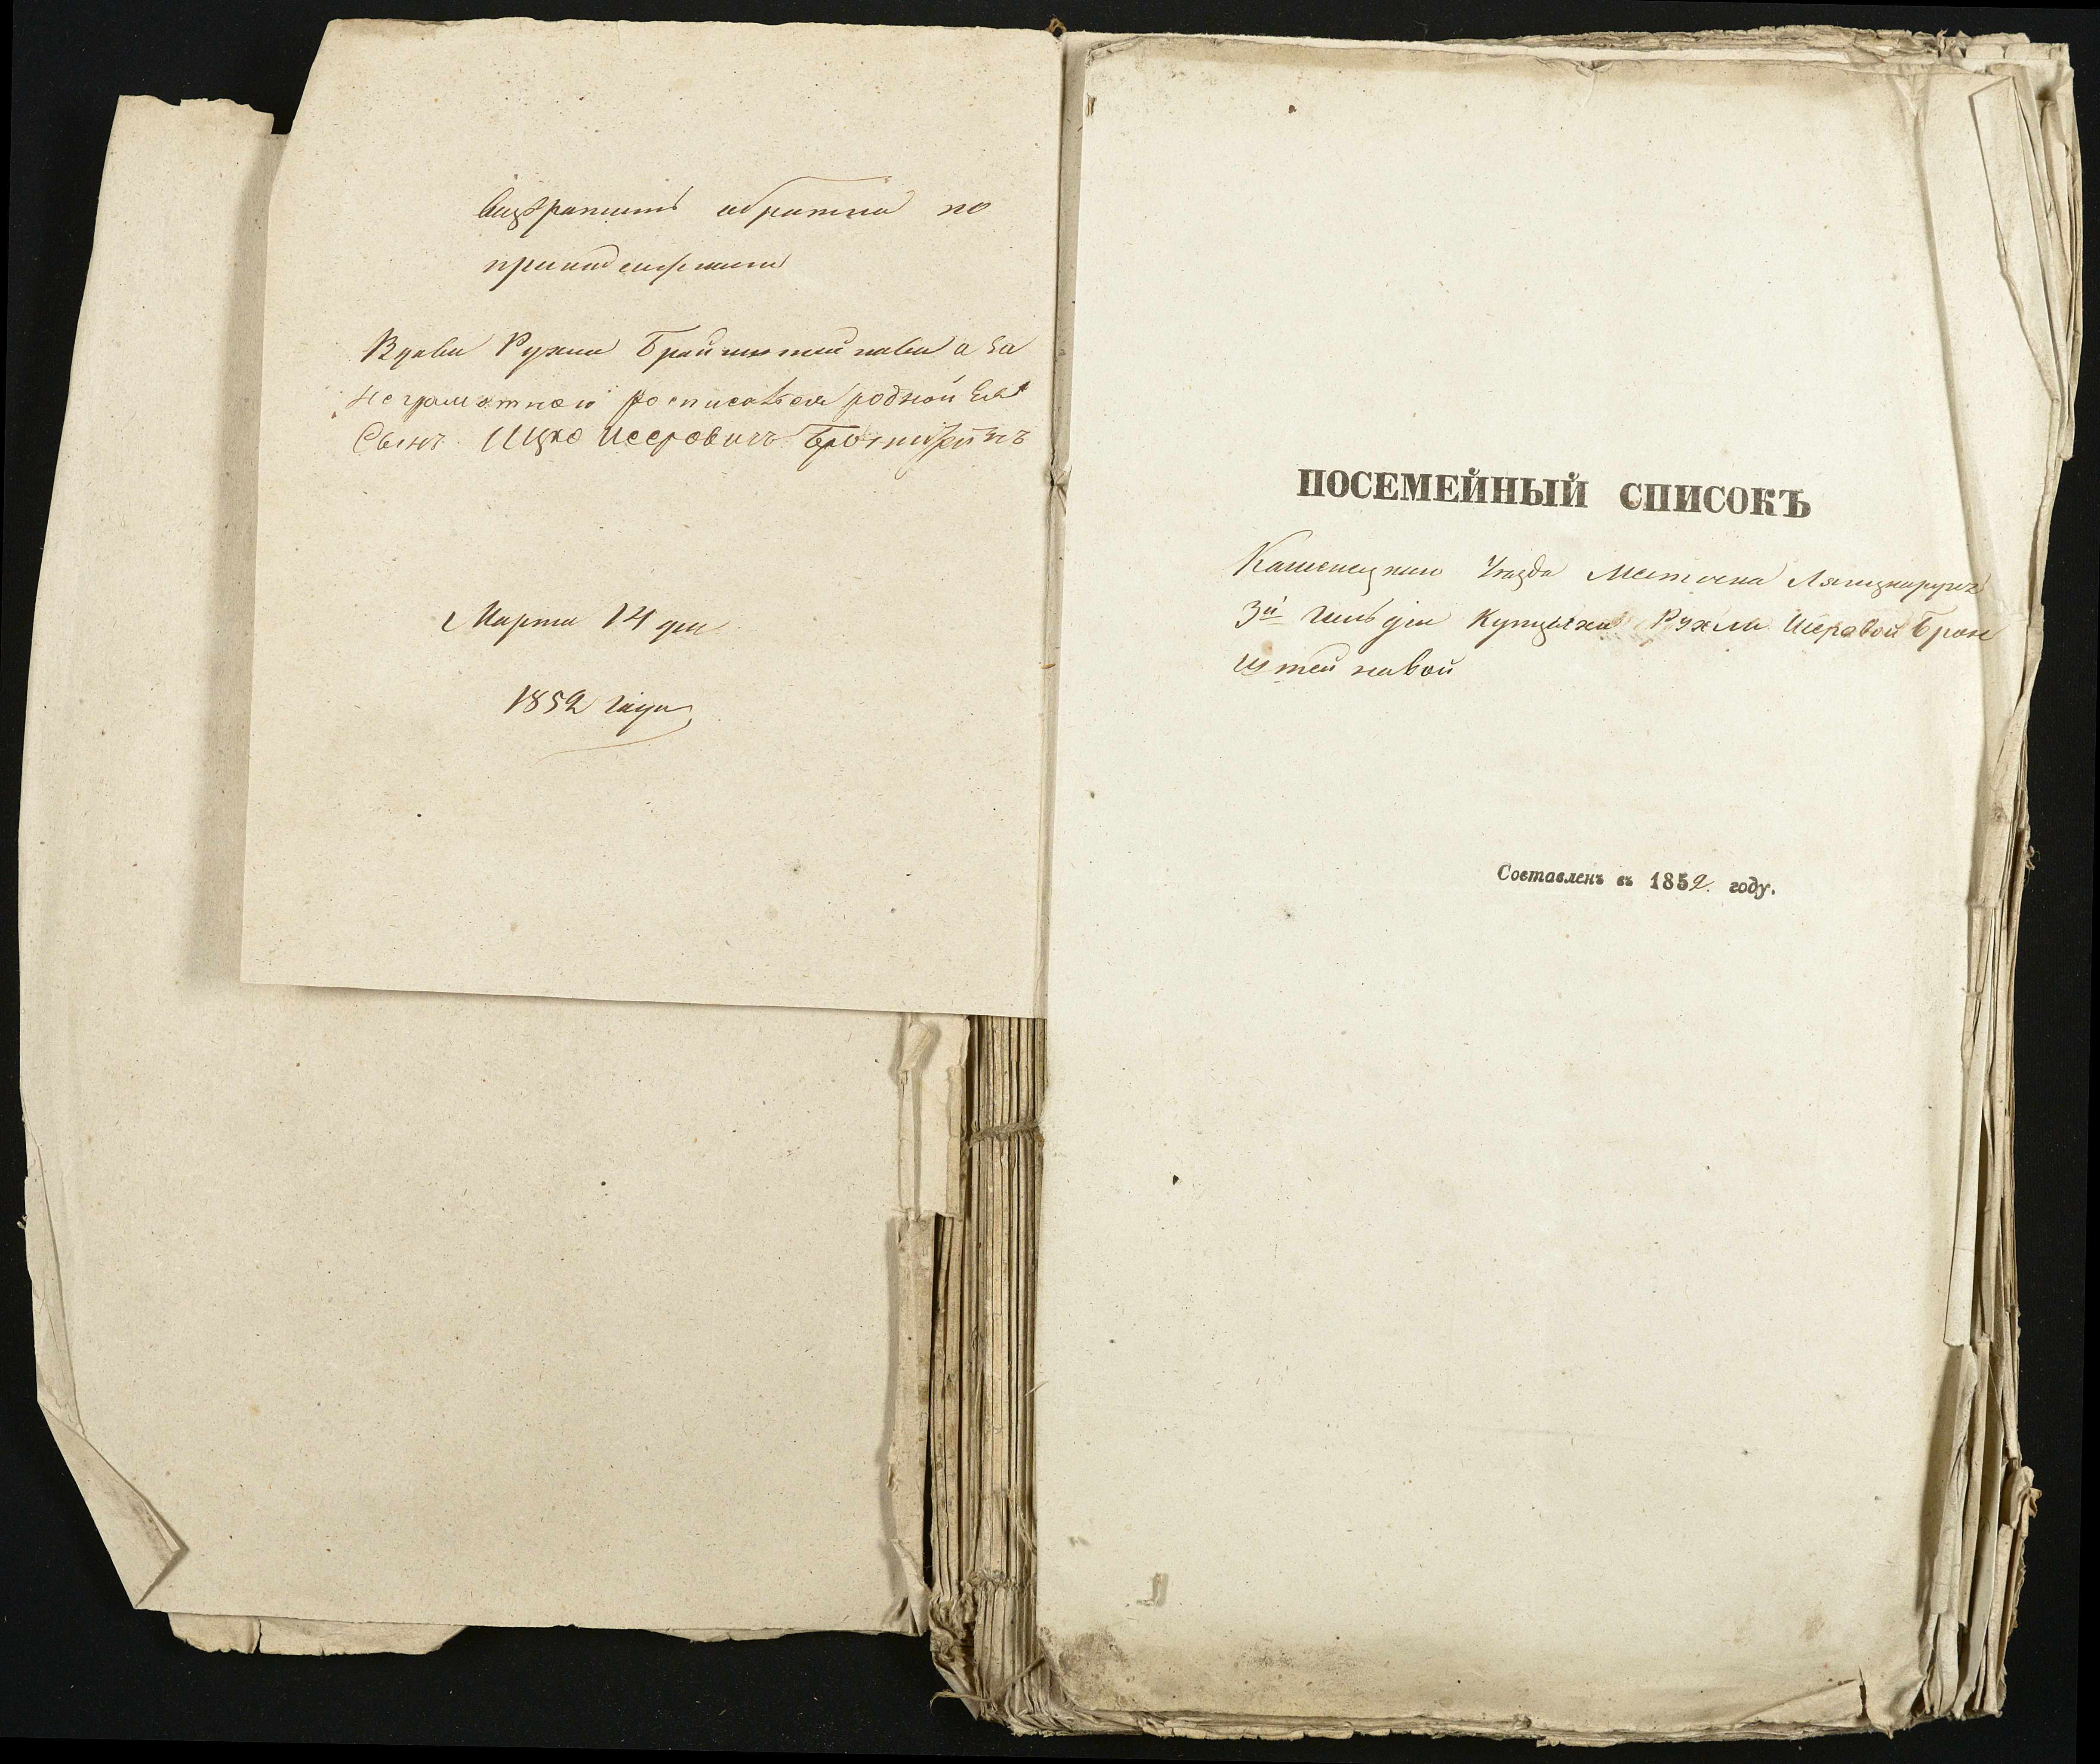 возвратить обратно по
принадлежности
Вдова Рухля Бронштейнова а за
неграмотною росписался родной Ея
Сынъ Ицко Исеровичъ Бронштейнъ
Марта 14 дня
1852 года
ПОСЕМЕЙНЫЙ СПИСОКЪ
Каменецкаго Уезда Местечка Лянцкорунъ
3й Гильдіи Купчихи Рухли Исеровой Брон
штейновой
Составленъ въ 1852. году.